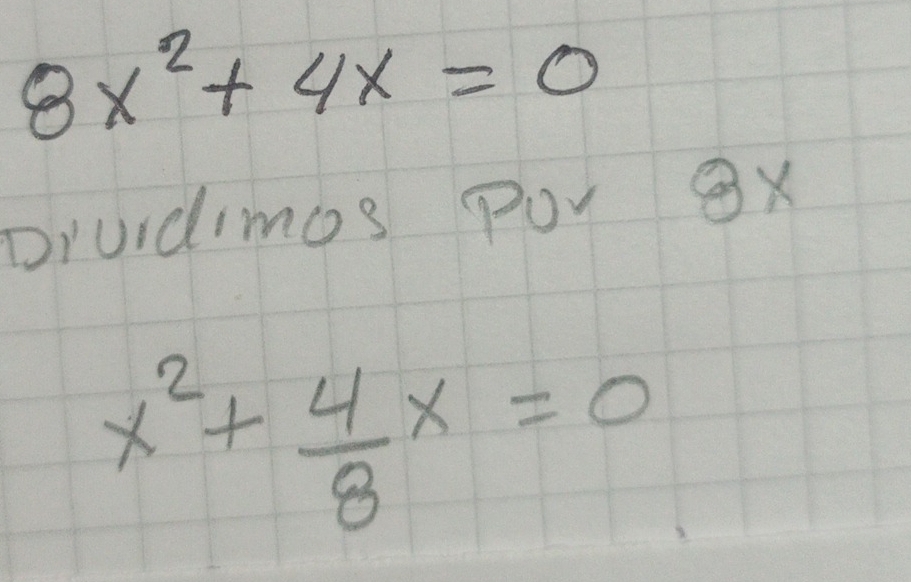 8x² + 4x = 0
Dividimos Por 8x
x² + 4/8 x = 0